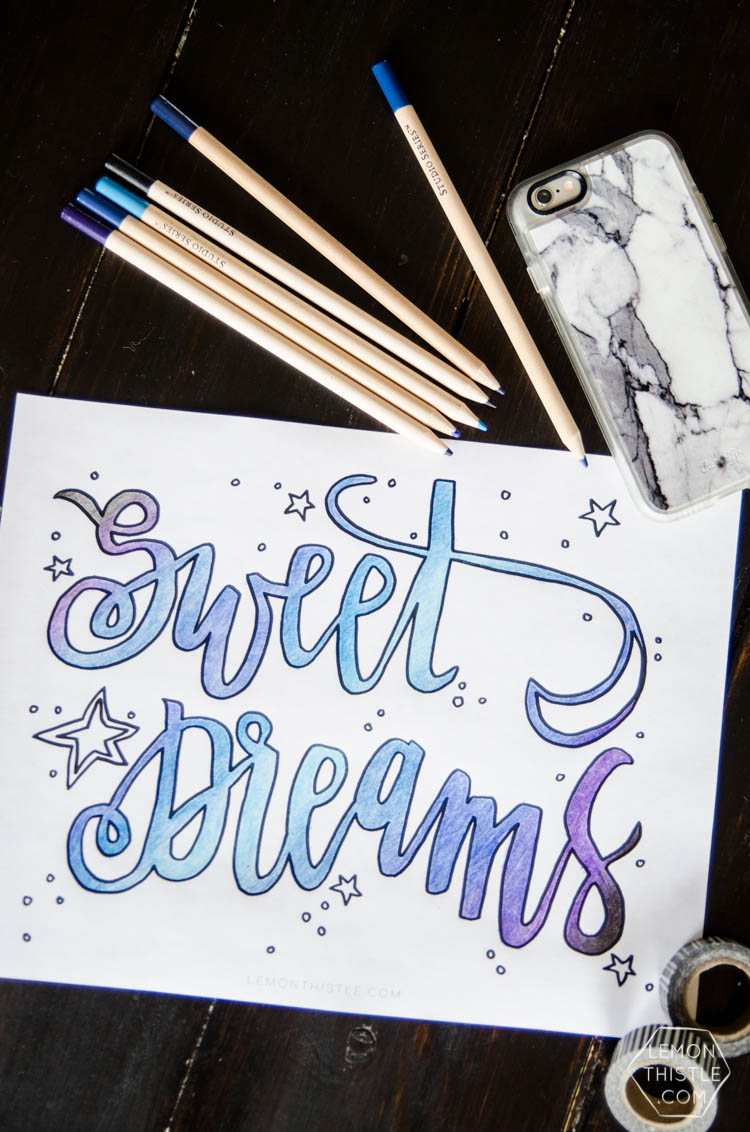 STUDIO SERIES™
STUDIO SERIES™
STUDIO SERIES™
Sweet
Dreams
LEMONTHISTLE.COM
LEMON
THISTLE
.COM